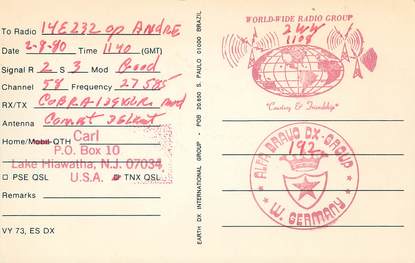 To Radio 14E232 op ANDRE
Date 2-8-90 Time 1140 (GMT)
Signal R 2 S 3 Mod Good
Channel 58 Frequency 27585
RX/TX COBRA
Antenna Comet
Home/Mobil QTH
Carl
P.O. Box 10
Lake Hiawatha, N.J. 07034
U.S.A.
PSE QSL TNX QSL
Remarks
VY 73, ES DX
EARTH DX INTERNATIONAL GROUP - POB 20.650 S. PAULO 01000 BRAZIL
WORLD-WIDE RADIO GROUP
2WW
1108
"Courtesy & Friendship"
ALFA BRAVO DX-GROUP
192
W. GERMANY